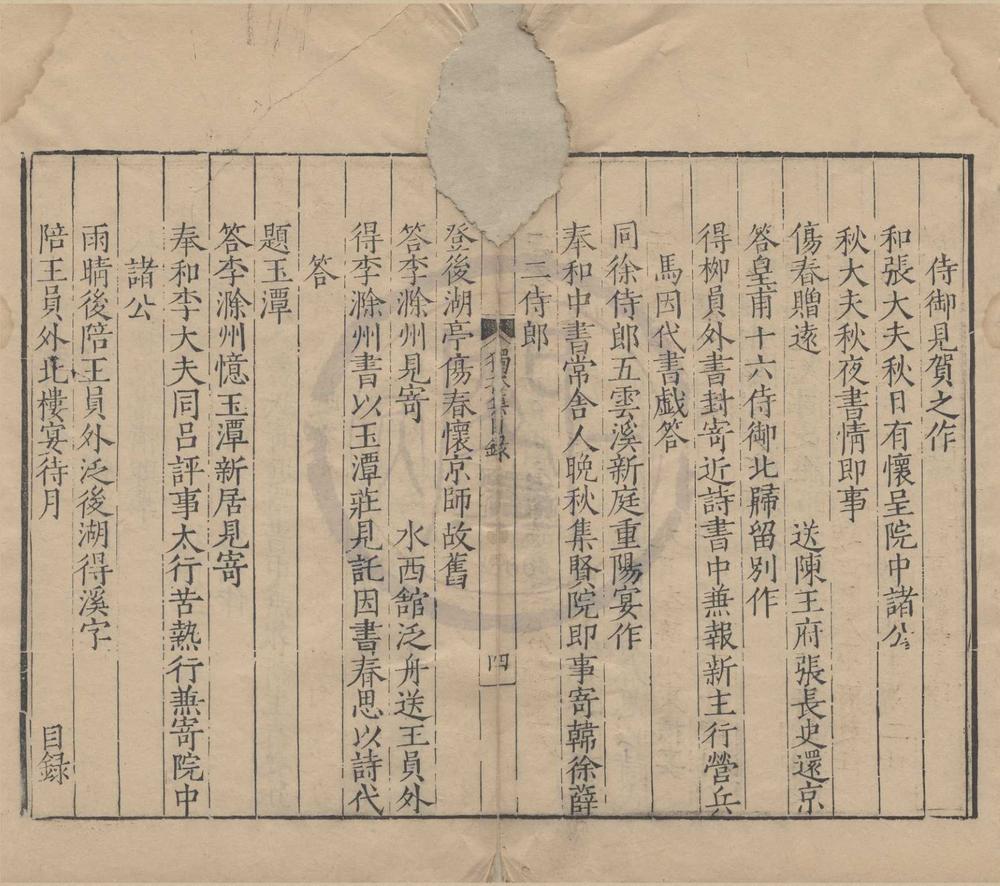 侍御見賀之作
和張大夫秋日有懷呈院中諸公
秋大夫秋夜書情即事
傷春贈遠　送陳王府張長史還京
答皇甫十六侍御北歸留別作
得柳員外書封寄近詩書中兼報新主行營兵
馬因代書戲答
同徐侍郎五雲溪新庭重陽宴作
奉和中書常舍人晚秋集賢院即事寄韓徐薛
二侍郎
獨孤集目錄
四
登後湖亭傷春懷京師故舊
答李滁州見寄　水西館泛舟送王員外
得李滁州書以玉潭莊見託因書春思以詩代
答
題玉潭
答李滁州憶玉潭新居見寄
奉和李大夫同呂評事太行苦熱行兼寄院中
諸公
雨晴後陪王員外泛後湖得溪字
陪王員外北樓宴待月　目錄